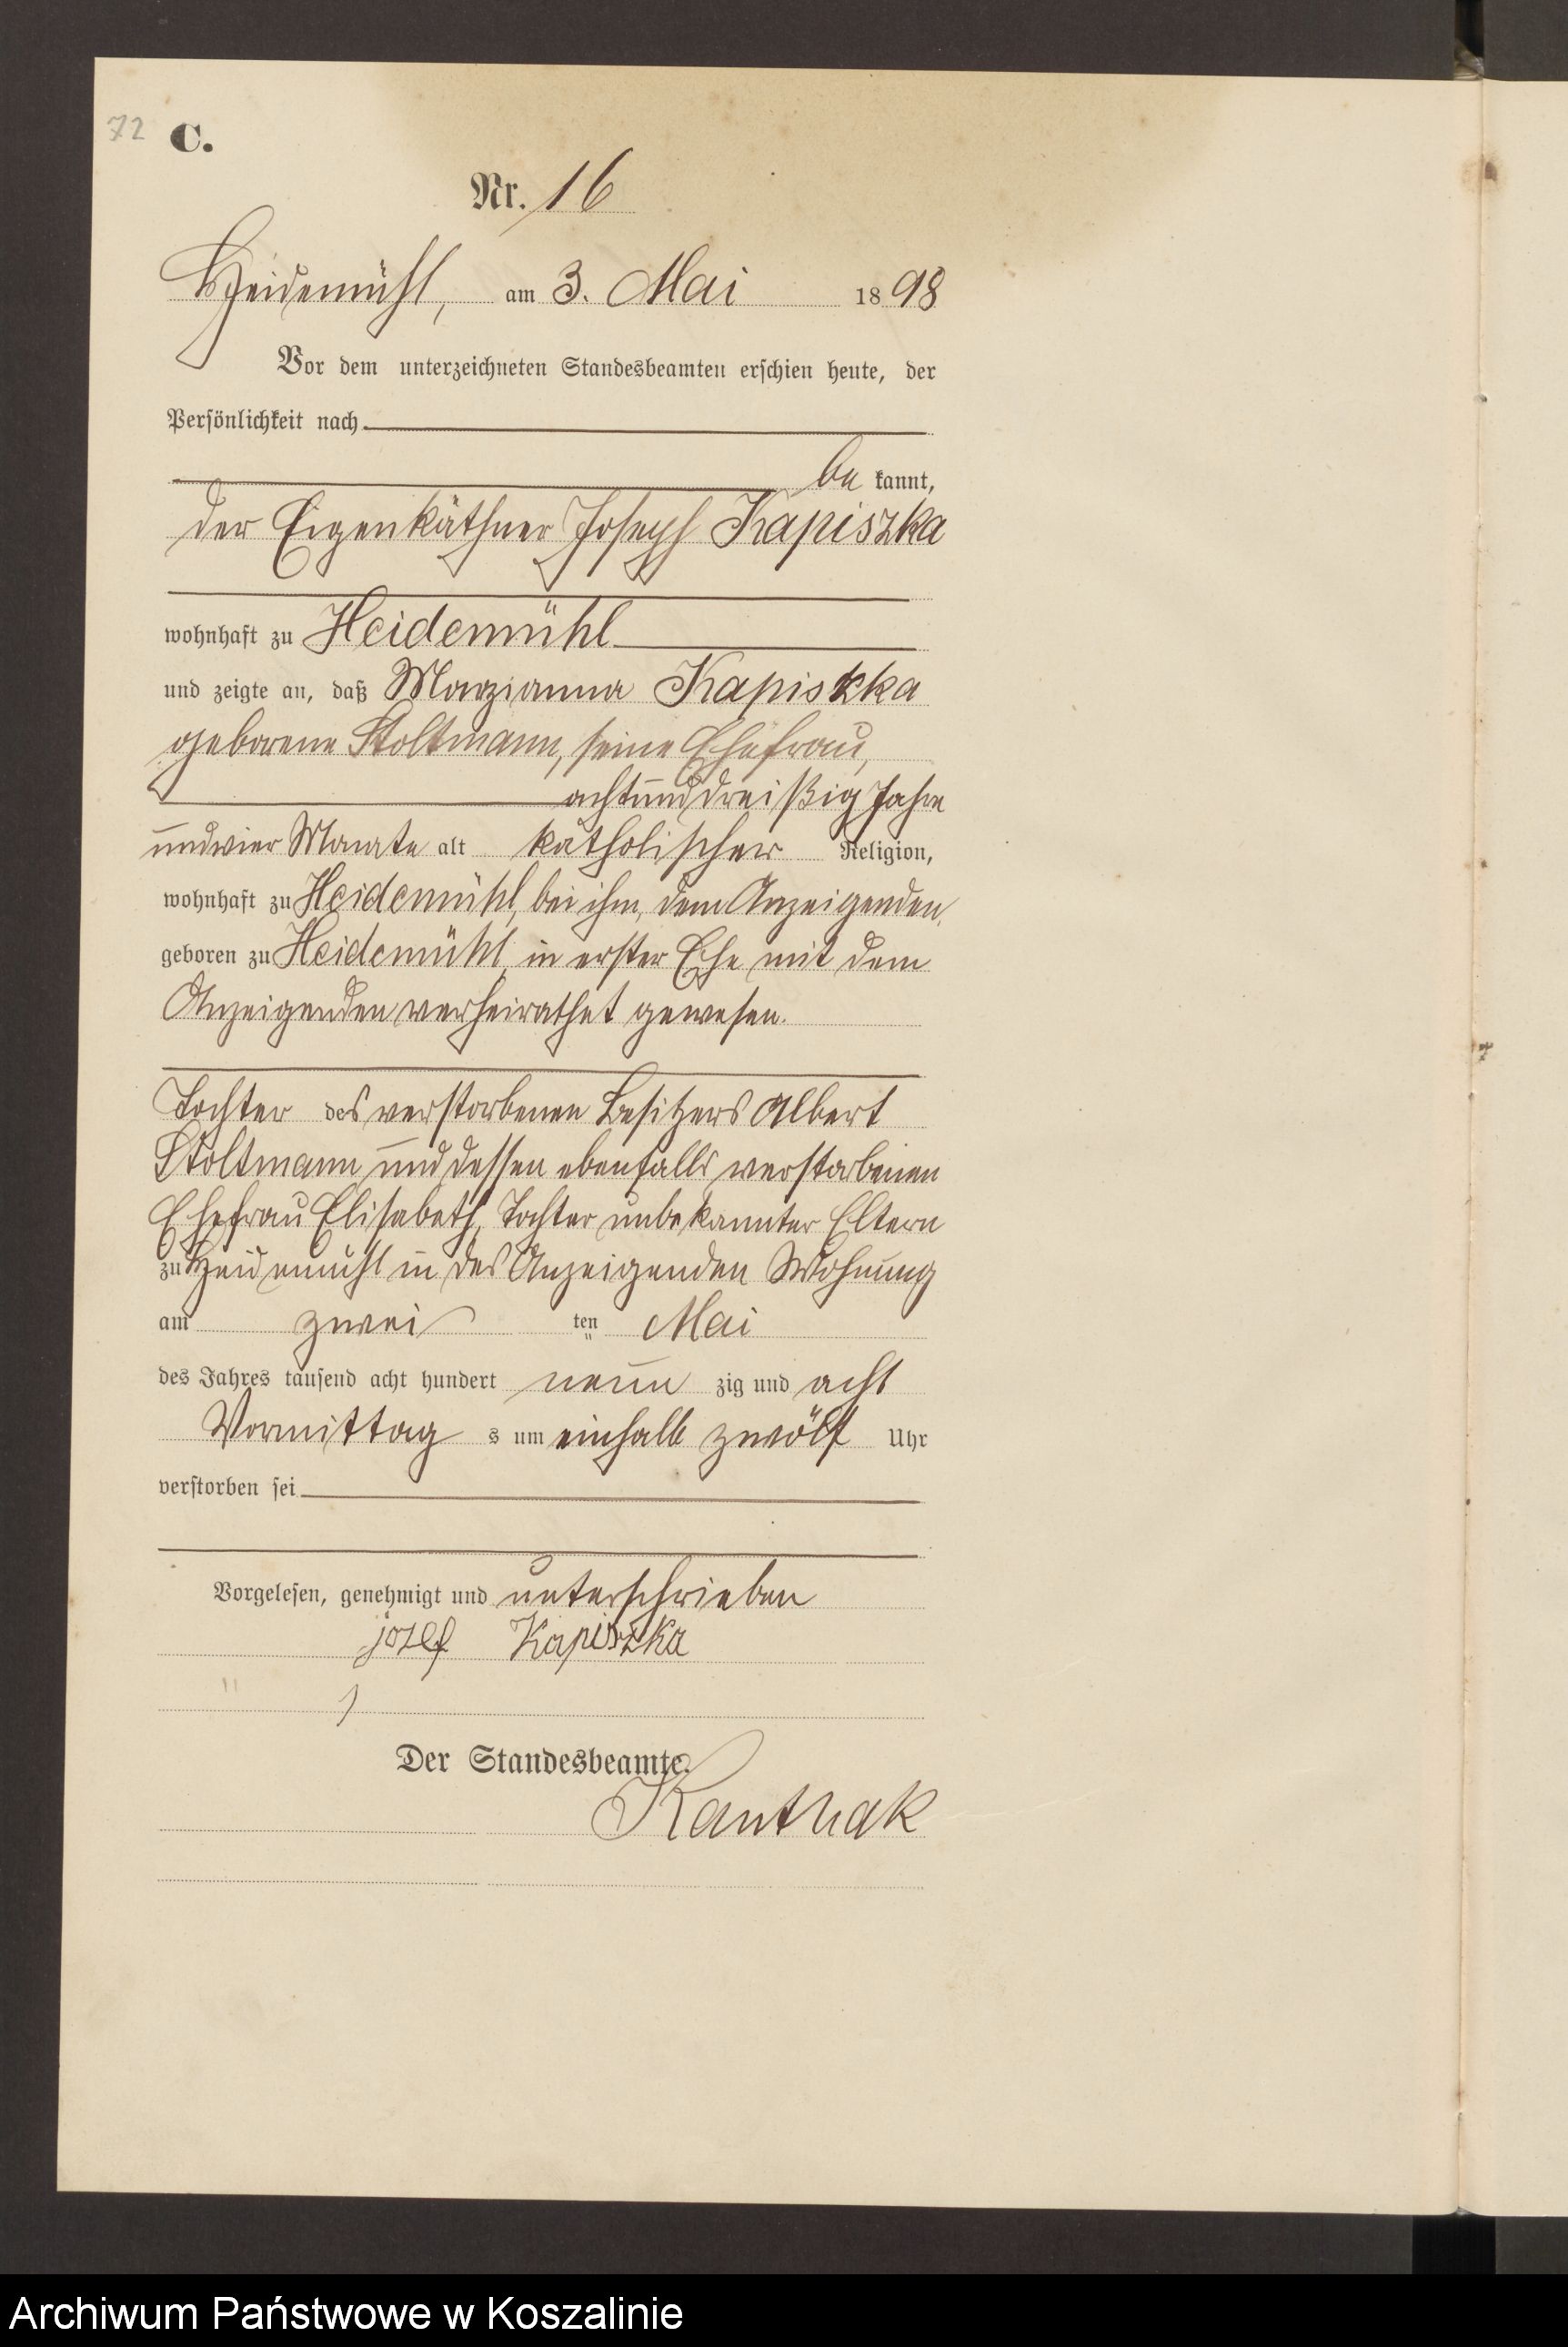 72 C.
Nr. 16
Heidemühl, am 3. Mai 1898
Vor dem unterzeichneten Standesbeamten erschien heute, der
Persönlichkeit nach
be kannt,
der Eigenkäthner Joseph Kapiszka
wohnhaft zu Heidemühl
und zeigte an, daß Marzianna Kapiszka
geborene Stoltmann, seine Ehefrau,
achtunddreißig Jahre
und vier Monate alt katholischer Religion,
wohnhaft zu Heidemühl, bei ihm, dem Anzeigenden,
geboren zu Heidemühl, in erster Ehe mit dem
Anzeigenden verheirathet gewesen.
Tochter des verstorbenen Besitzers Albert
Stoltmann und dessen ebenfalls verstorbenen
Ehefrau Elisabeth, Tochter unbekannter Eltern
zu Heidemühl in des Anzeigenden Wohnung
am zwei ten Mai
des Jahres tausend acht hundert neun zig und acht
Vormittag s um einhalb zwölf Uhr
verstorben sei
Vorgelesen, genehmigt und unterschrieben
józef Kapiszka
Der Standesbeamte.
Kanthak
Archiwum Państwowe w Koszalinie